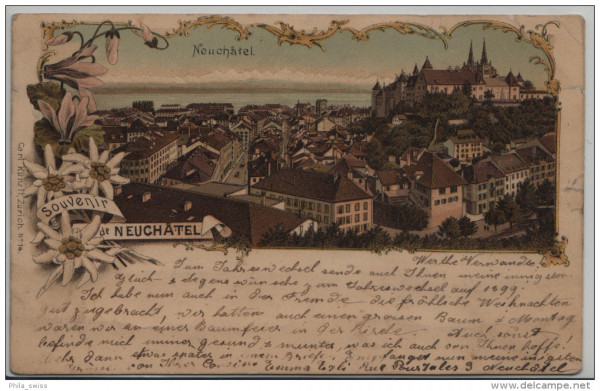 Neuchâtel.
Souvenir
de NEUCHÂTEL
Carl Künzli, Zürich. No
Werthe Verwandte!
Zum Jahreswechsel sende auch Ihnen meine innigsten
Glück- & Segenswünsche zum Jahreswechsel auf 1899.
Ich habe nun auch in der Fremde die fröhliche Weihnachten
gut zugebracht, wir hatten auch einen grossen Baum & Montag
waren wir an einer Baumfeier in der Kirche. Auch sonst
befinde mich immer gesund & munter, was ich auch von Ihnen hoffe!
Mehr dann etwas später in einem Briefe. Empfanget nun meine innigsten
von Ihrer Cousine Emma Rue Pourtales 9 Neuchâtel
Phila_swiss
www.delcampe.net